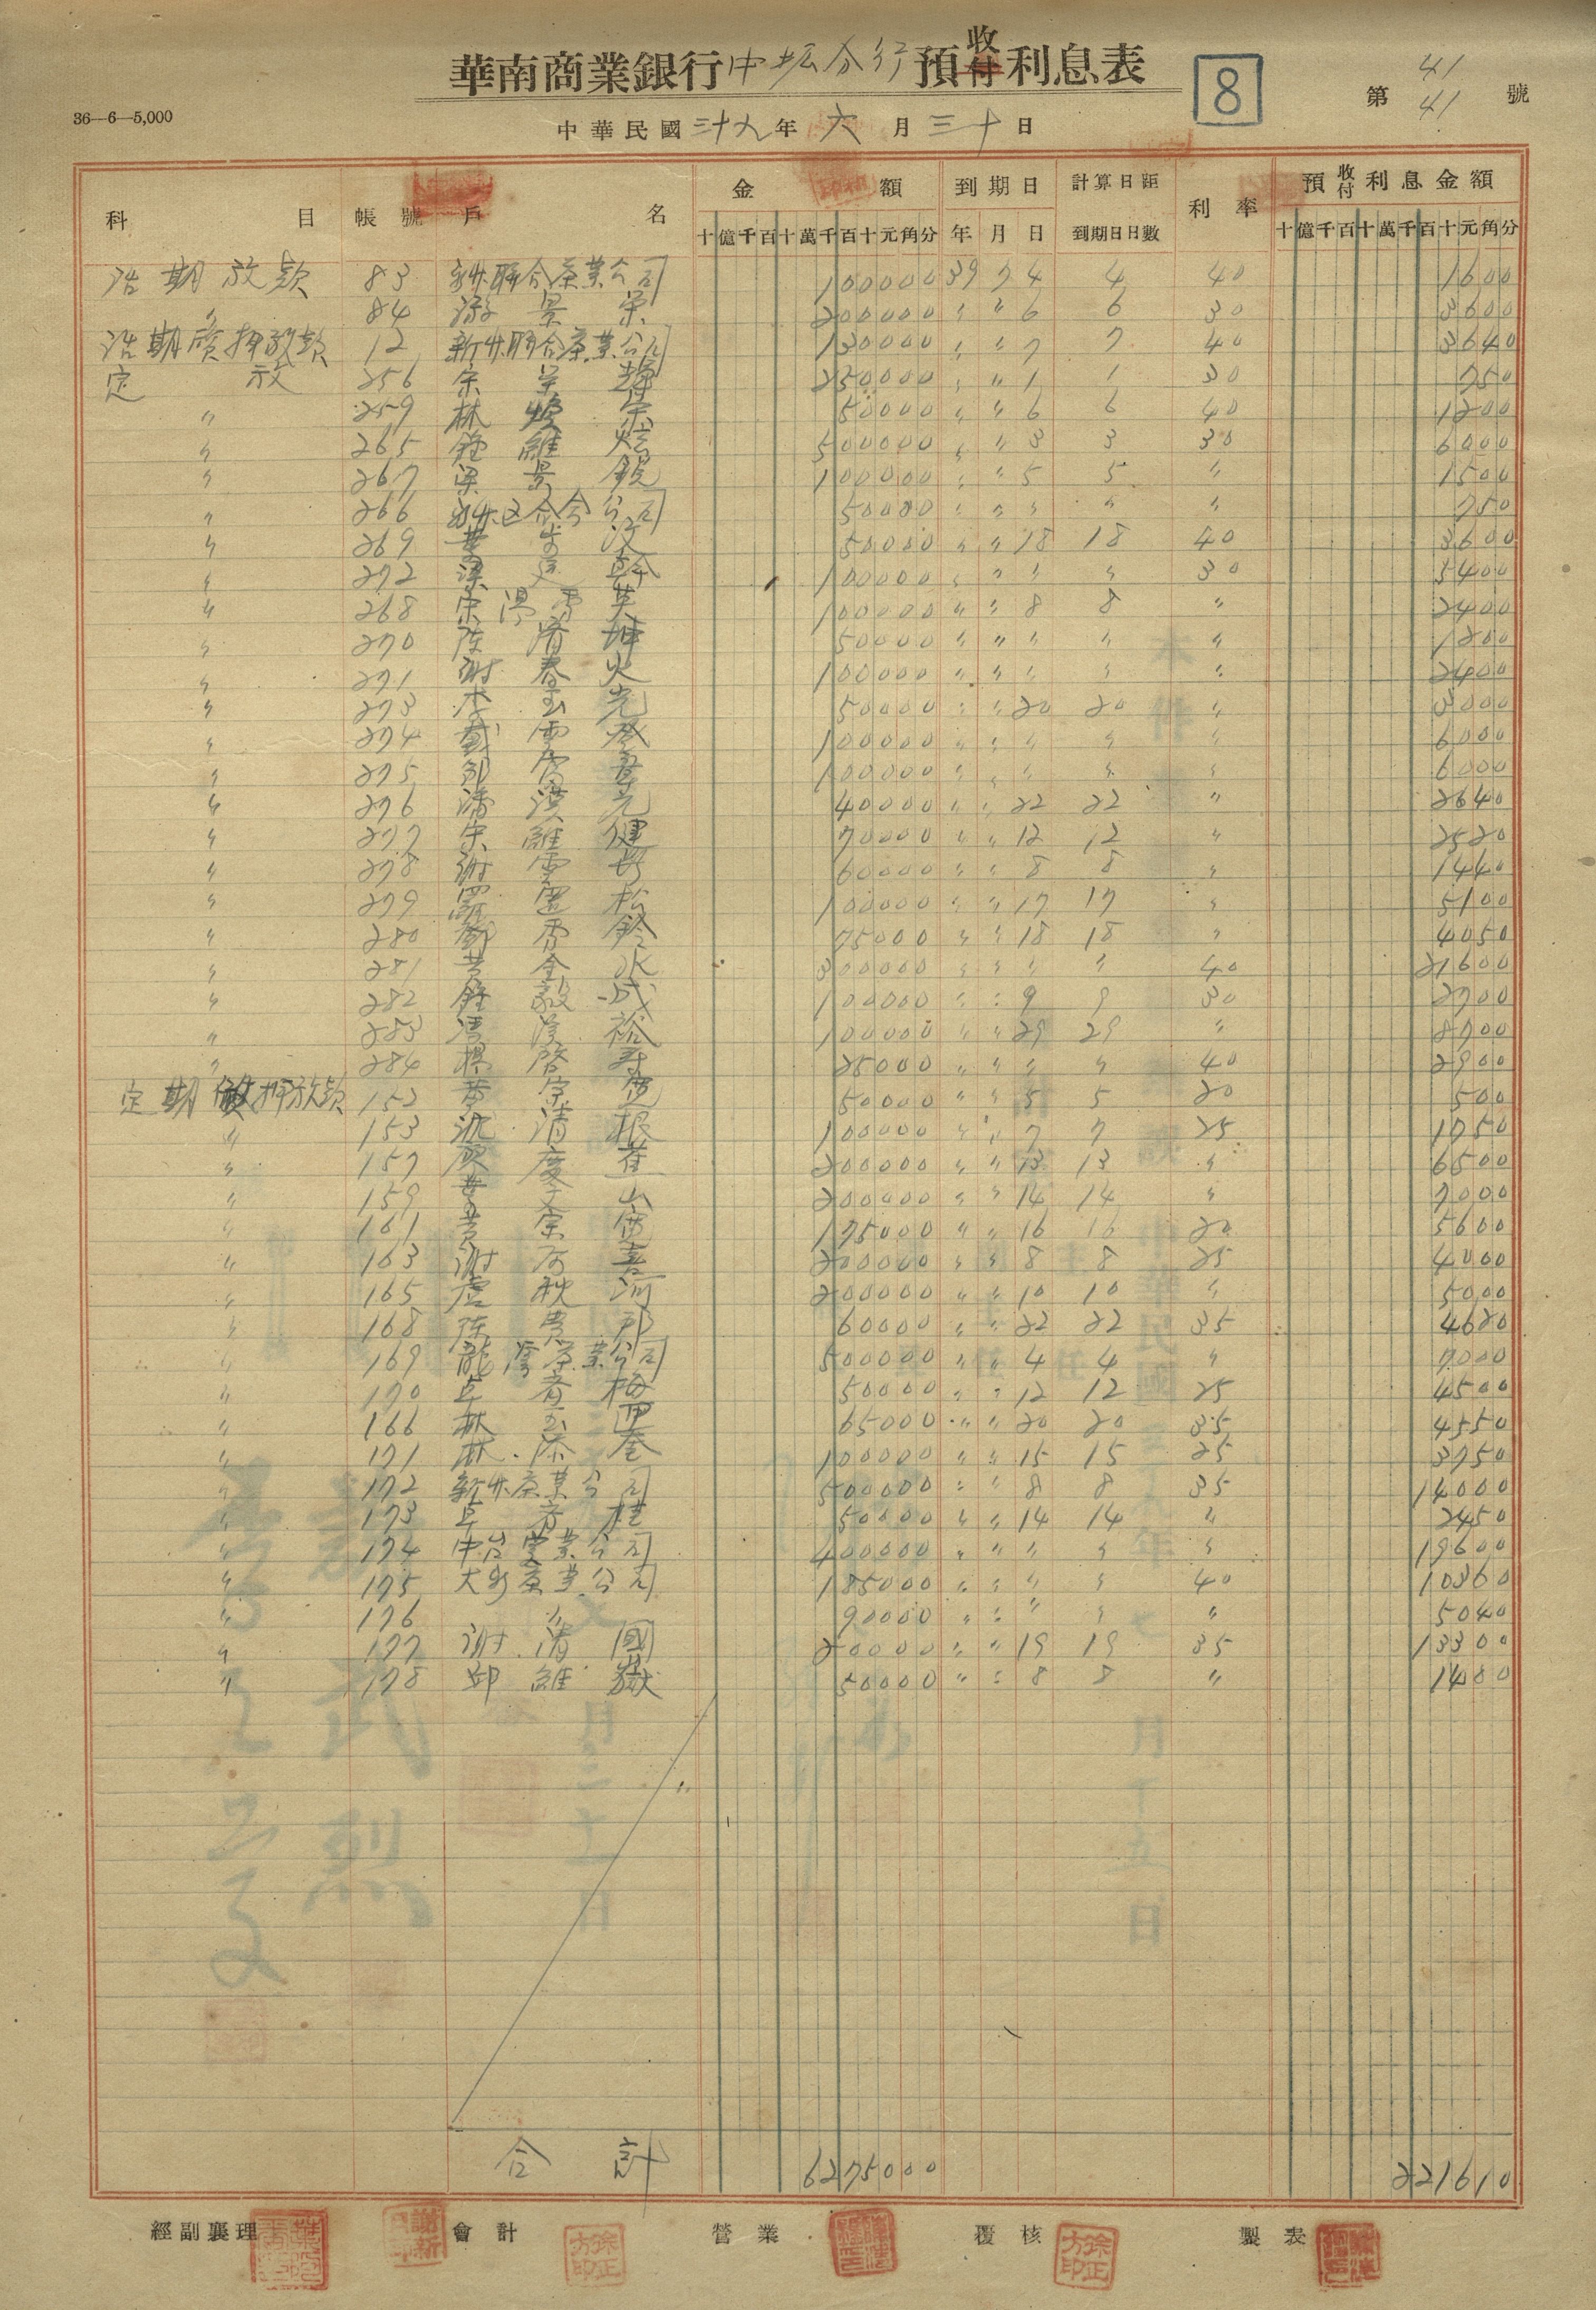 華南商業銀行中坜分行預收付利息表
8
第 41 41 號
36—6—5,000
中華民國三十九年六月三十日
科目 帳號 戶名 金額 到期日 計算日距到期日日數 利率 預收付利息金額
十億千百十萬千百十元角分 年 月 日 十億千百十萬千百十元角分
活期放款 83 新竹聯合茶業公司 100000 39 7 4 4 40 1600
〃 84 游景榮 200000 〃 〃 6 6 30 3600
活期質押放款 12 新竹聯合茶業公司 130000 〃 〃 7 7 40 3640
定放 256 宋榮 250000 〃 〃 1 1 30 750
〃 259 林煥宗 50000 〃 〃 6 6 40 1200
〃 265 鍾維炫 500000 〃 〃 3 3 30 6000
〃 267 梁景錕 100000 〃 〃 5 5 〃 1500
〃 266 新竹区合会公司 50000 〃 〃 〃 〃 〃 750
〃 269 黄 50000 〃 〃 18 18 40 3600
〃 272 梁廷幹 100000 〃 〃 〃 〃 30 5400
〃 268 宋湯 英 100000 〃 〃 8 8 〃 2400
〃 270 陈清坤 50000 〃 〃 〃 〃 〃 1200
〃 271 謝春火 100000 〃 〃 〃 〃 〃 2400
〃 273 李玉光 50000 〃 〃 20 20 〃 3000
〃 274 戴雲盛 100000 〃 〃 〃 〃 〃 6000
〃 275 100000 〃 〃 〃 〃 〃 6000
〃 276 潘漢元 40000 〃 〃 22 22 〃 2640
〃 277 宋維健 70000 〃 〃 12 12 〃 2520
〃 278 謝雲 60000 〃 〃 8 8 〃 1440
〃 279 羅 松 100000 〃 〃 17 17 〃 5100
〃 280 鈴 75000 〃 〃 18 18 〃 4050
〃 281 黄金水 300000 〃 〃 〃 〃 40 21600
〃 282 鍾毅成 100000 〃 〃 9 9 30 2700
〃 283 裕 100000 〃 〃 29 29 〃 8700
〃 284 啓 25000 〃 〃 〃 〃 40 2900
定期質押放款 152 黄宗 50000 〃 〃 5 5 20 500
〃 153 沈清根 100000 〃 〃 7 7 25 1750
〃 157 慶 200000 〃 〃 13 13 〃 6500
〃 159 黄文山 200000 〃 〃 14 14 〃 7000
〃 161 黄宗 175000 〃 〃 16 16 20 5600
〃 163 謝 喜 200000 〃 〃 8 8 25 4000
〃 165 秋河 200000 〃 〃 10 10 〃 5000
〃 168 陈貴郡 60000 〃 〃 22 22 35 4620
〃 169 龍潭茶業公司 500000 〃 〃 4 4 〃 7000
〃 170 卓 梅 50000 〃 〃 12 12 25 4500
〃 166 林玉迎 65000 〃 〃 20 20 35 4550
〃 171 林添奎 100000 〃 〃 15 15 25 3750
〃 172 新竹茶業公司 500000 〃 〃 8 8 35 14000
〃 173 卓 桂 50000 〃 〃 14 14 〃 2450
〃 174 中台農業公司 400000 〃 〃 〃 〃 〃 19600
〃 175 大新茶業公司 185000 〃 〃 〃 〃 40 10360
〃 176 〃 90000 〃 〃 〃 〃 〃 5040
〃 177 謝清國 200000 〃 〃 19 19 35 13300
〃 178 邱維嶽 50000 〃 〃 8 8 〃 1400
合計 6275000 221610
經副襄理 會計 營業 覆核 製表